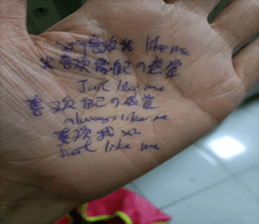 喜欢我 like me
喜欢自己の感觉
Just like me
喜欢自己の感觉
always like me
喜欢我
Just like me